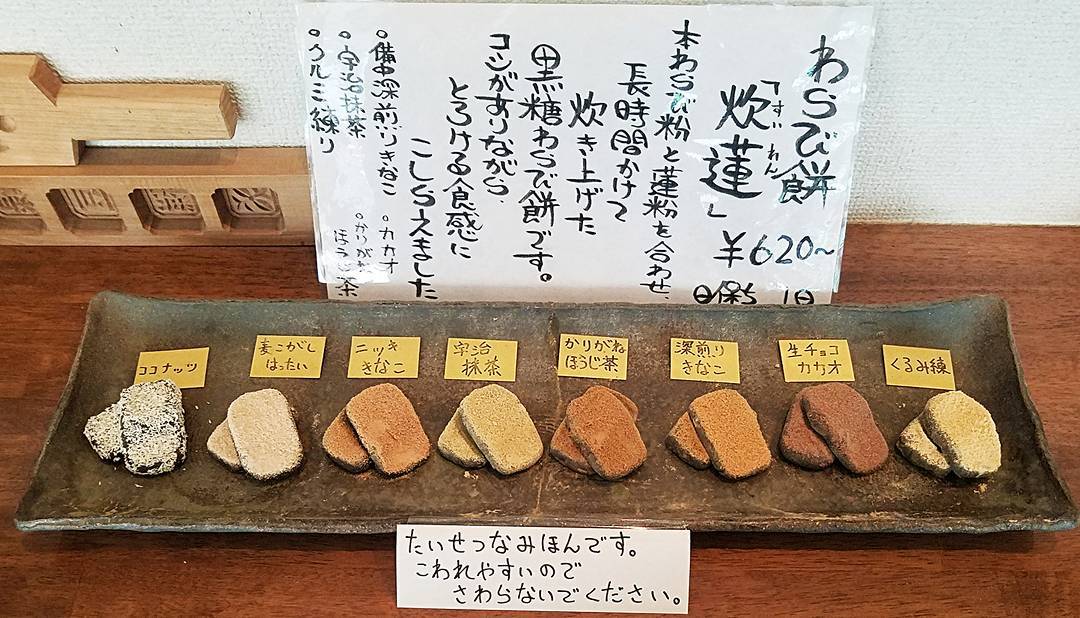 わらび餅
すい れん
「炊蓮」
￥620~
日保ち 1日
本わらび粉と蓮粉を合わせ、
長時間かけて
炊き上げた
黒糖わらび餅です。
コシがありながら、
とろける食感に
こしらえました
○備中深煎りきなこ
○宇治抹茶
○クルミ練り
○カカオ
○かりがね
ほうじ茶
ココナッツ
麦こがし
はったい
ニッキ
きなこ
宇治
抹茶
かりがね
ほうじ茶
深煎り
きなこ
生チョコ
カカオ
くるみ練
たいせつなみほんです。
こわれやすいので
さわらないでください。